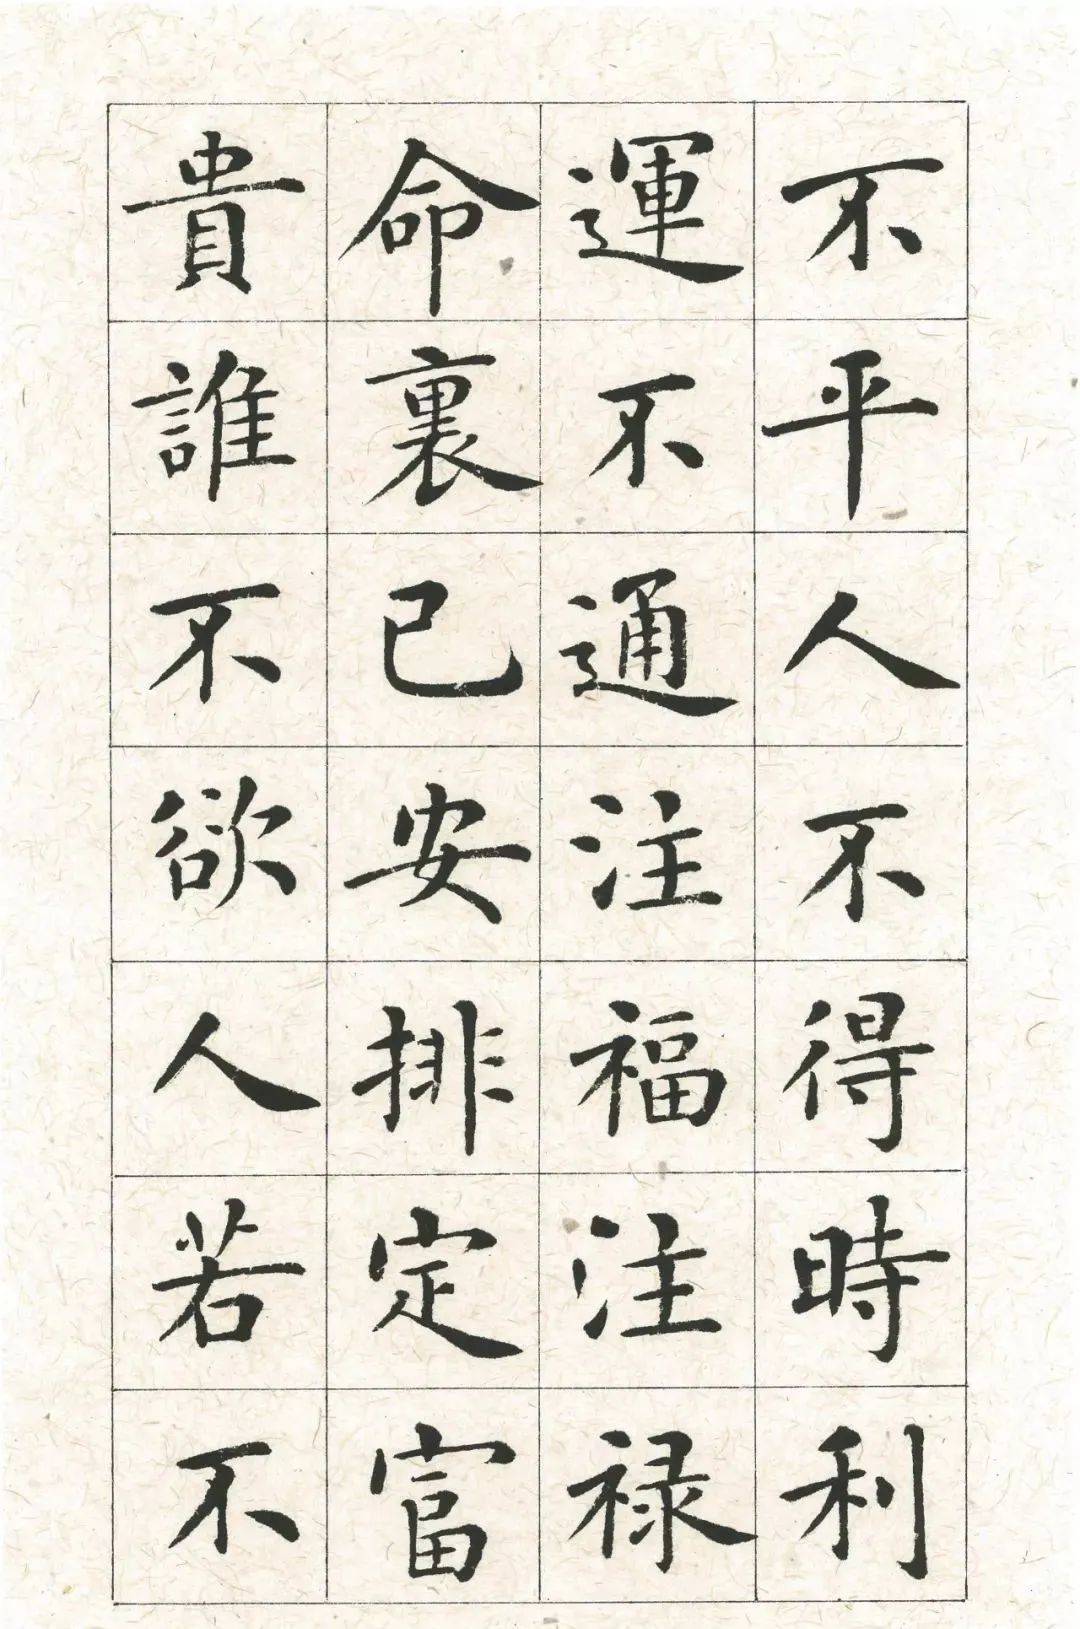 不平人不得時利
運不通注福注禄
命裏已安排定富
貴誰不欲人若不